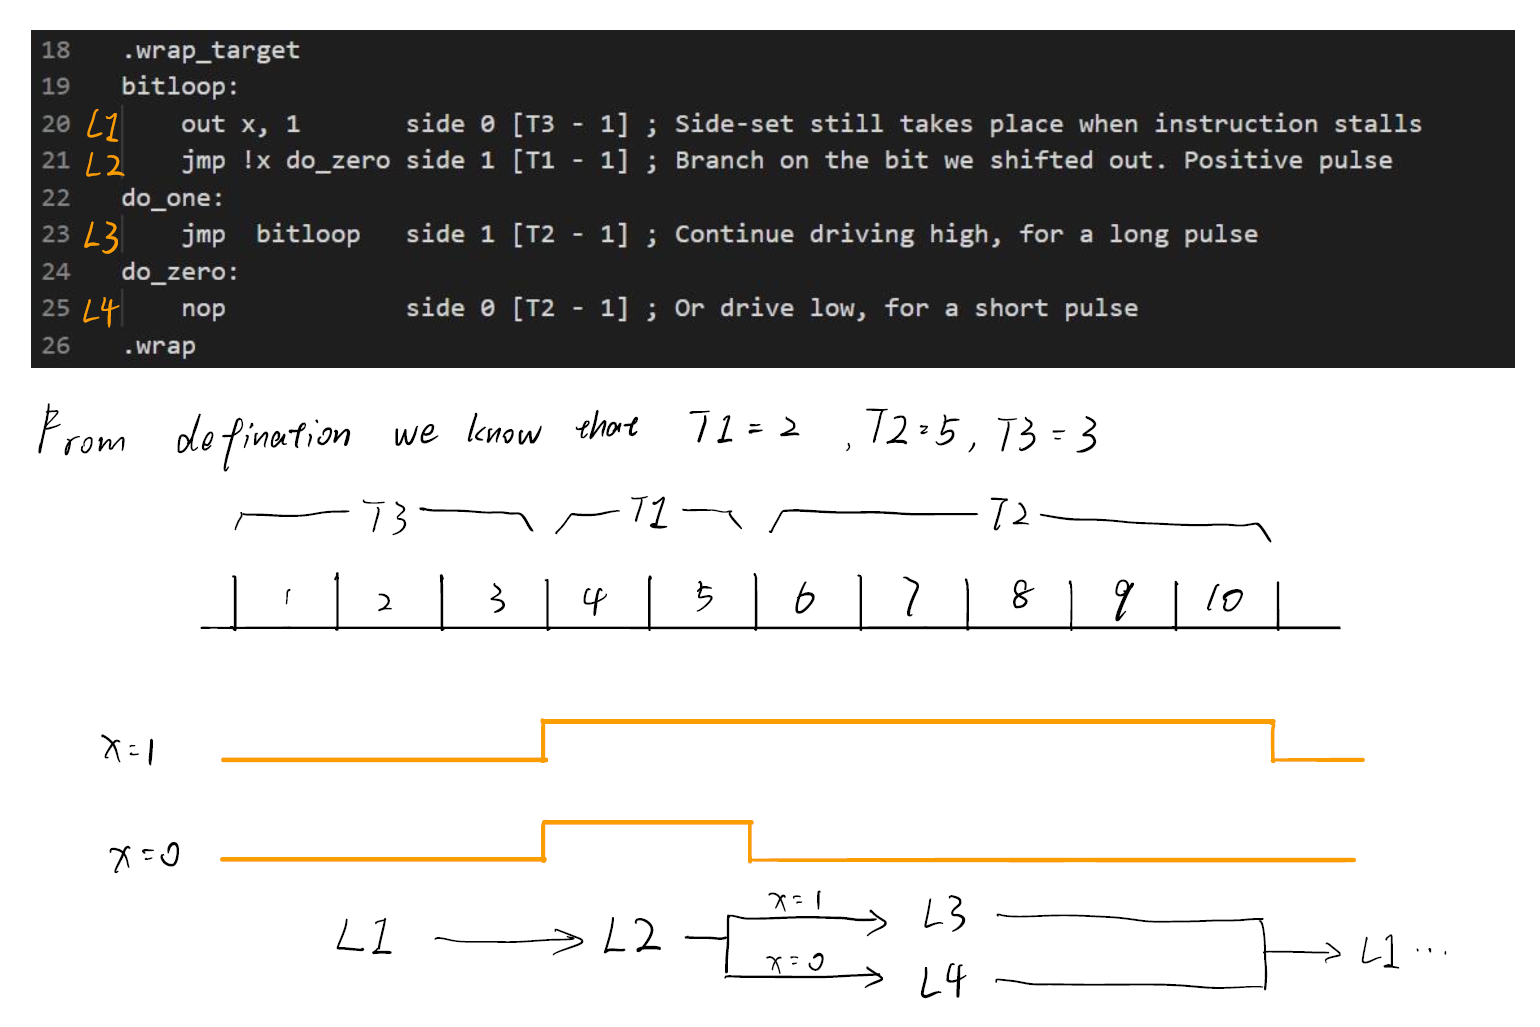 18 .wrap_target
19 bitloop:
20 L1 out x, 1 side 0 [T3 - 1] ; Side-set still takes place when instruction stalls
21 L2 jmp !x do_zero side 1 [T1 - 1] ; Branch on the bit we shifted out. Positive pulse
22 do_one:
23 L3 jmp bitloop side 1 [T2 - 1] ; Continue driving high, for a long pulse
24 do_zero:
25 L4 nop side 0 [T2 - 1] ; Or drive low, for a short pulse
26 .wrap
From defination we know that T1=2 , T2=5, T3=3
T3 T1 T2
1 2 3 4 5 6 7 8 9 10
x=1
x=0
x=1 L3
L1 L2 L1 ...
x=0 L4